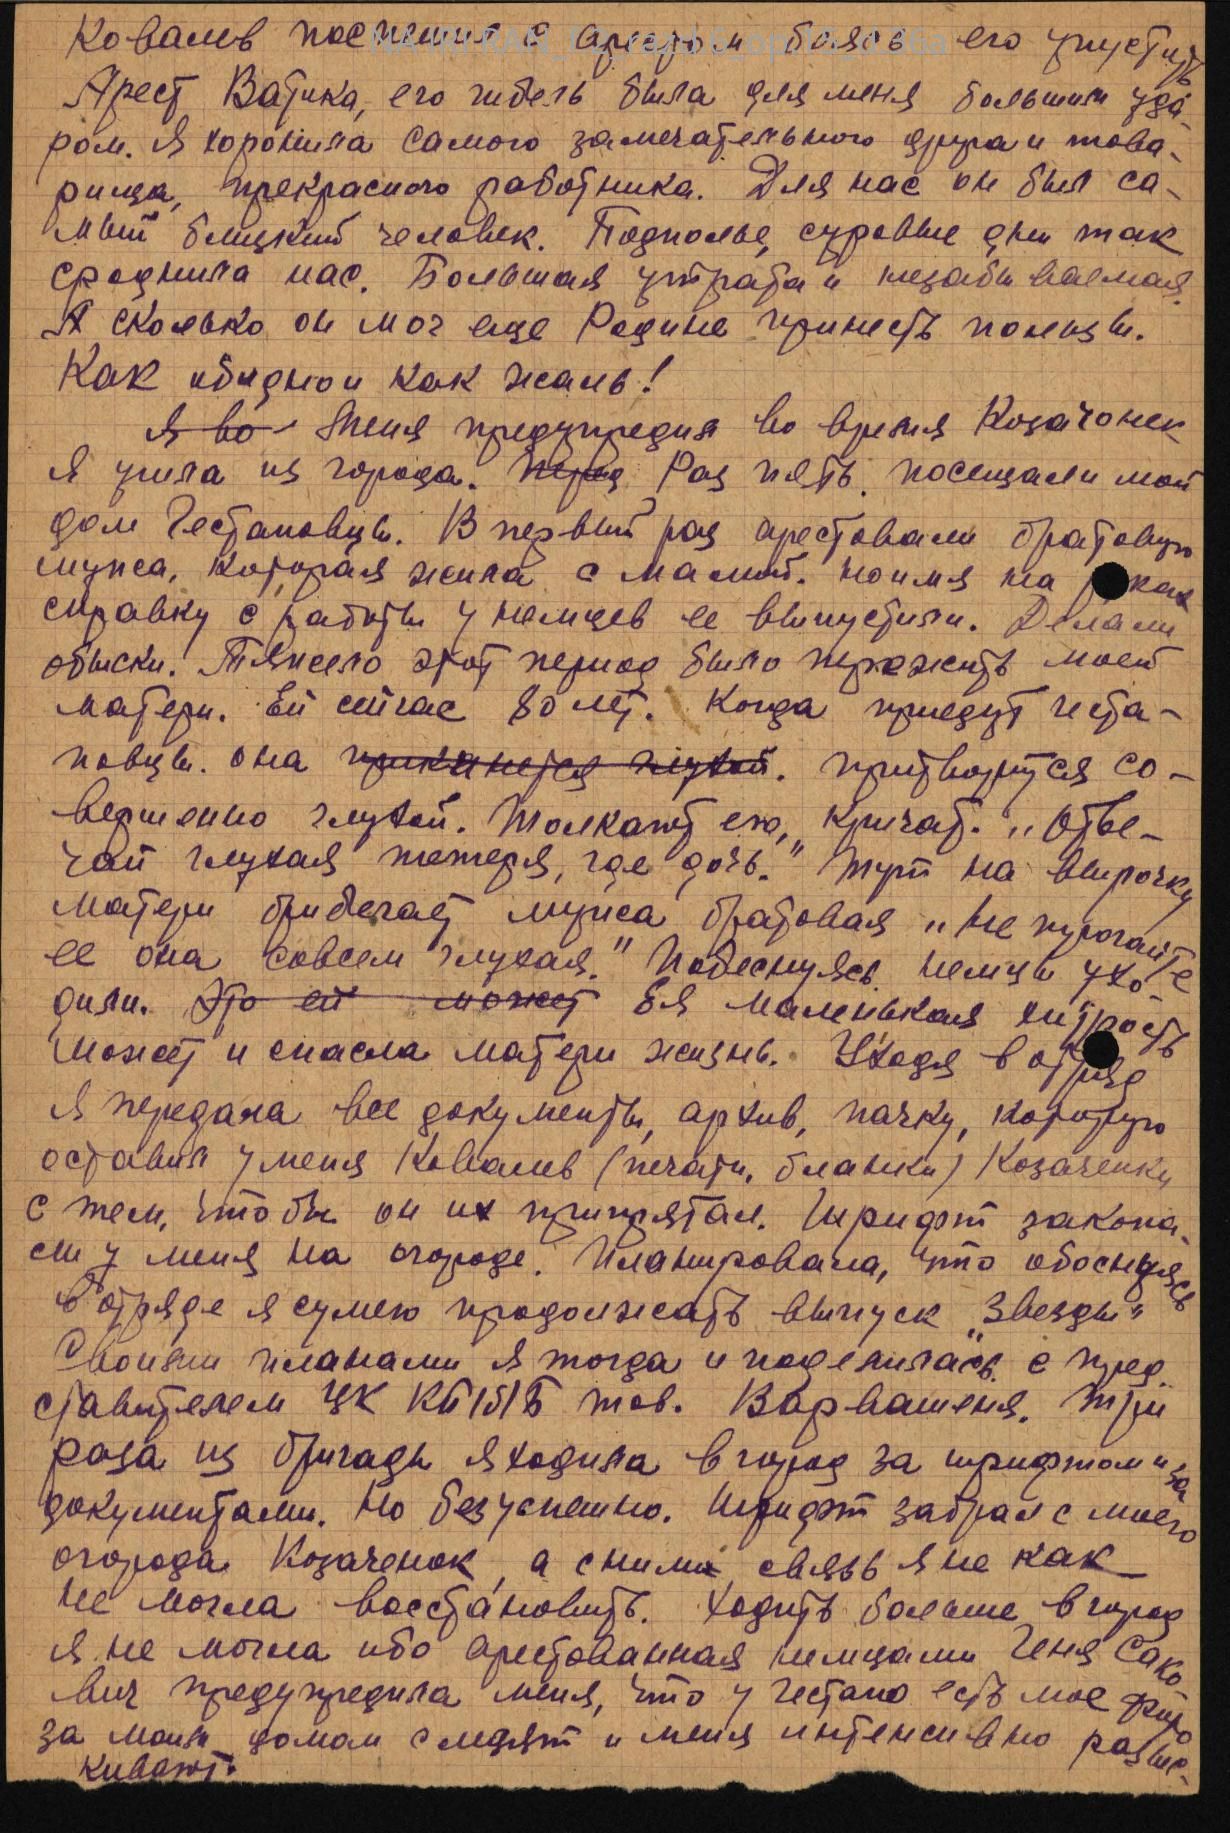 Ковалев поспешил с арестом боясь его упустить
Арест Ватика, его гибель была для меня большим уда-
ром. Я хоронила самого замечательного друга и това-
рища, прекрасного работника. Для нас он был са-
мый близкий человек. Подполье, суровые дни так
сроднила нас. Большая утрата и незабываемая.
А сколько он мог еще Родине принесть пользы.
Как обидно и как жаль!
Я во- Меня предупредил во время Козаченек
я ушла из города. Перед Раз пять посещали мой
дом Гестаповцы. В первый раз арестовали братовую
мужа, которая жила с мамой. Но имя на руках
справку с работы у немцев ее выпустили. Делали
обыски. Тяжело этот период было пережить моей
матери. Ей сейчас 80 лет. Когда приедут геста-
повцы. она прикинется глухой. притворится со-
вершенно глухой. Толкают ею, кричат. "Отве-
чай глухая тетеря, где дочь." Тут на выручку
матери прибегает мужса братовая "Не пугайте
ее она совсем глухая." Побеснуясь немцы ухо-
дили. Это ей может Ея маленькая хитрость
может и спасла матери жизнь. Уходя в отряд
я передала все документы, архив, пачку, которую
оставил у меня Ковалев (печати, бланки) Козаченки
с тем, что бы он их припрятал. Шрифт закопа-
ли у меня на огороде. Планировала, что обоснуясь
в отряде я сумею продолжать выпуск "Звезды"
Своими планами я тогда и поделилась с пред.
ставителем ЦК КП/б/Б тов. Варвашеня. Три
раза из бригады я ходила в город за шрифтом и за
документами. Но безуспешно. Шрифт забрал с моего
огорода Козаченок, а с ними связь я не как
не могла восстановить. Ходить больше в город
я не могла ибо арестованная немцами Геня Сако
вич предупредила меня, что у гестапо есть мое фото
за моим домом следят и меня интенсивно разыс-
кивают.